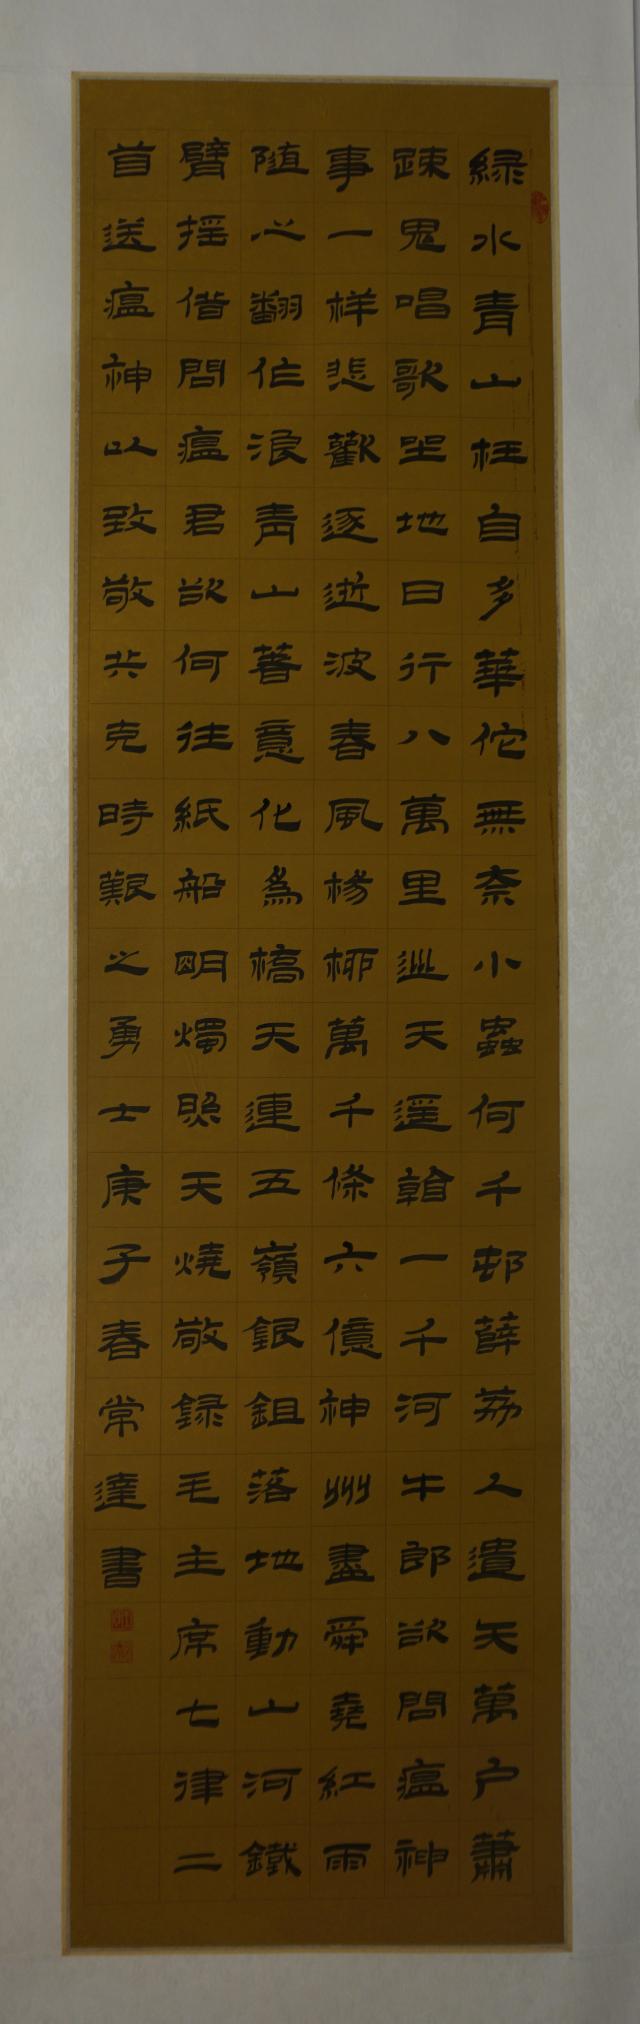 綠水青山枉自多華佗無奈小蟲何千邨薜荔人遺矢萬户蕭
疎鬼唱歌坐地日行八萬里巡天遥看一千河牛郎欲問瘟神
事一樣悲歡逐逝波春風楊柳萬千條六億神州盡舜堯紅雨
随心翻作浪青山着意化為橋天連五嶺銀鉏落地動山河鐵
臂摇借問瘟君欲何往紙船明燭照天燒敬録毛主席七律二
首送瘟神以致敬共克時艱之勇士庚子春常達書